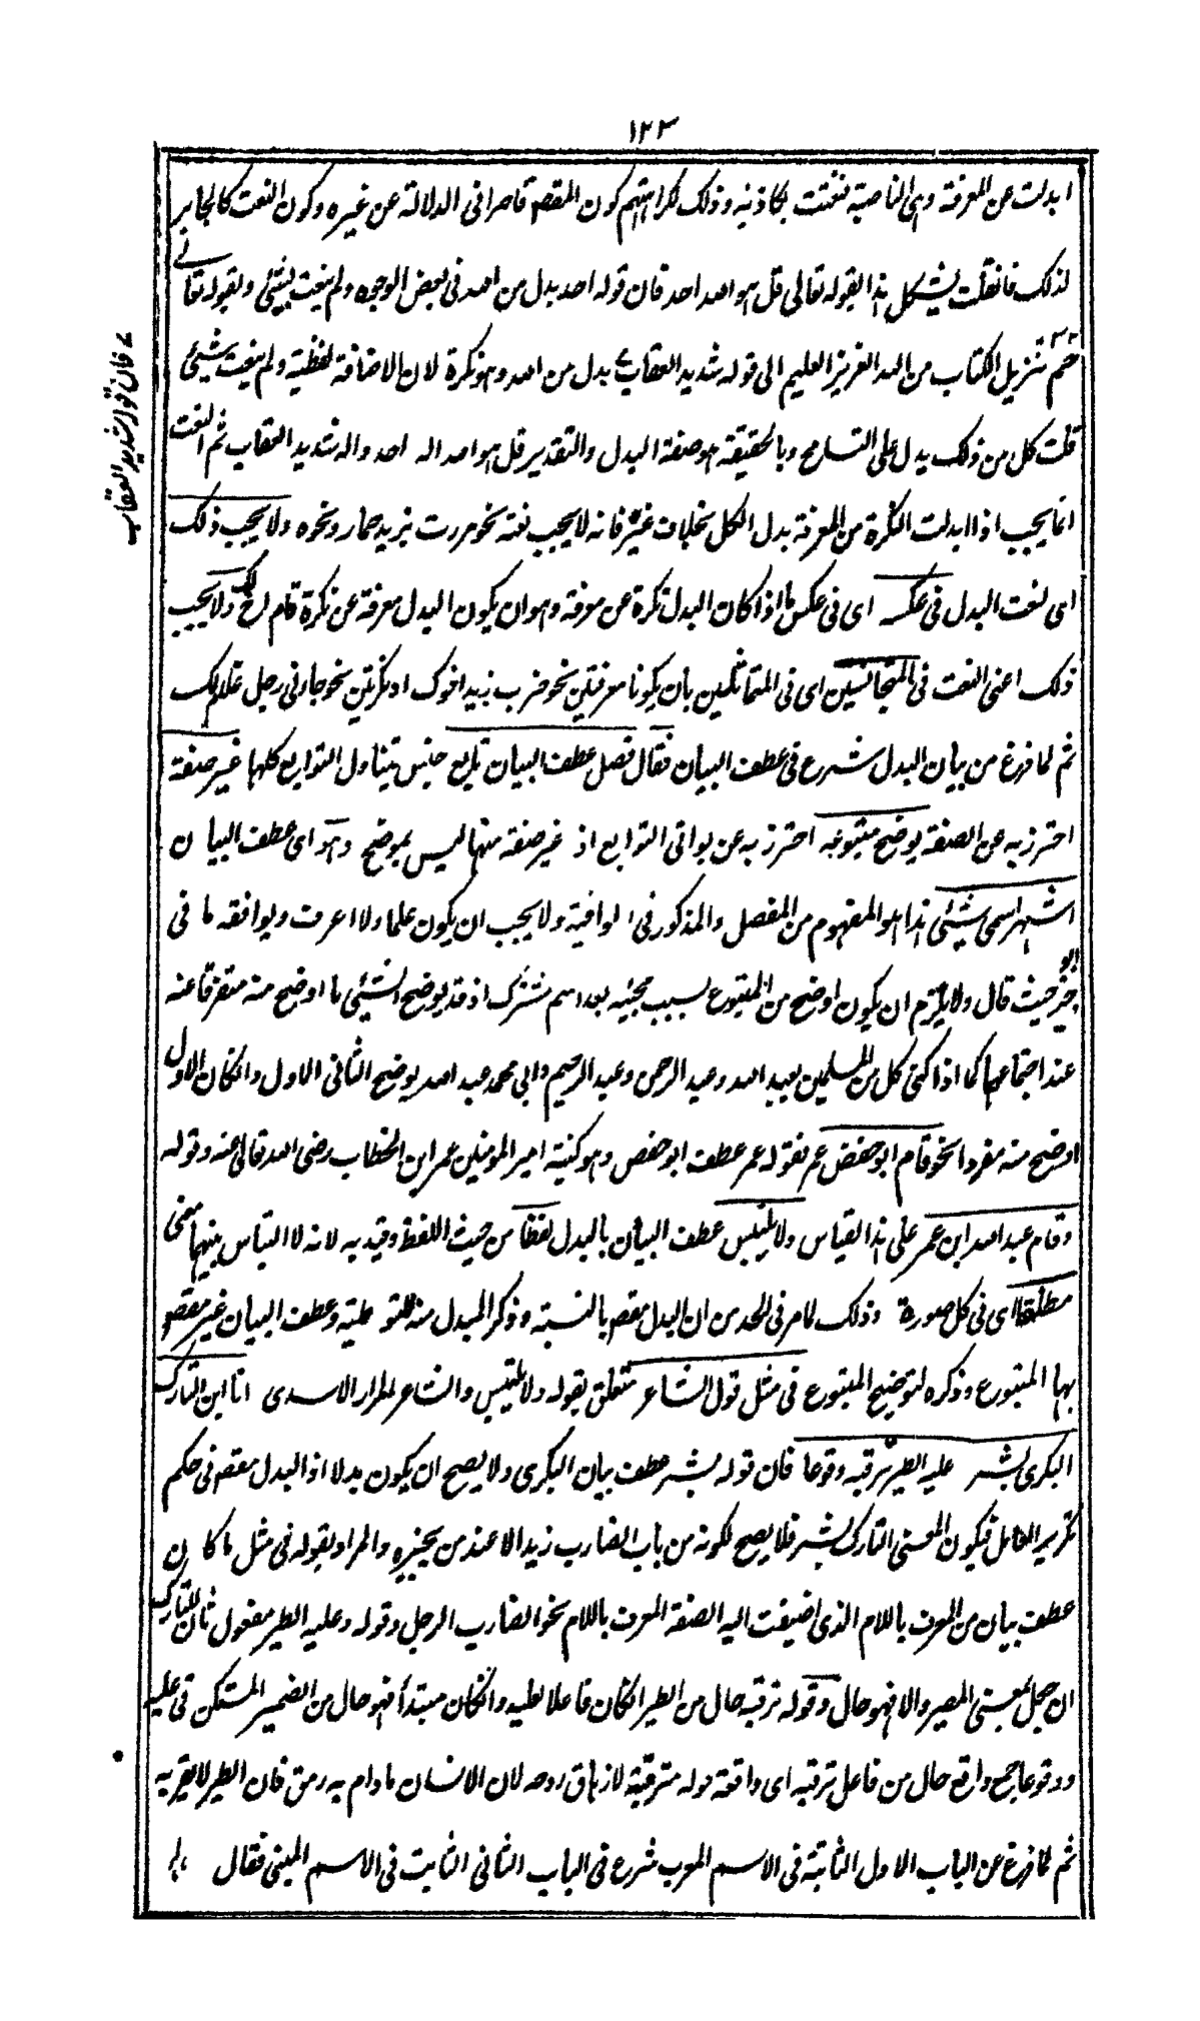 ١٢٣
ابدلت عن المعرفة وهى الناصية نعتت بكاذبة وذلك لكراهتهم كون المقصو قاصرا فى الدلالة عن غيره وكون النعت كالجابر
لذلك فانقلت يشكل هذا بقوله تعالى قل هو الله احد فان قوله احد بدل من الله فى بعض الوجوه ولم ينعت بشئى وبقوله تعالى
حم تنزيل الكتاب من الله العزيز العليم الى قوله شديد العقاب بدل من الله وهو نكرة لان الاضافة لفظية ولم ينعت بشيئى
قلت كل من ذلك يدل على التسامح وبالحقيقة هو صفة البدل والتقدير قل هو الله اله احد واله شديد العقاب ثم النعت
انما يجب اذا ابدلت النكرة من المعرفة بدل الكل بخلاف غيره فانه لا يجب نعته نحو مررت بزيد حمار ونحوه ولا يجب ذلك
اى نعت البدل فى عكسه اى فى عكس ما اذا كان البدل نكرة عن معرفة وهو ان يكون البدل معرفة عن نكرة قام اخ لك ولا يجب
ذلك اعنى النعت فى المتجانسين اى فى المتماثلين بان يكونا معرفتين نحو ضرب زيد اخوك او نكرتين نحو جاءنى رجل غلام لك
ثم لما فرغ من بيان البدل شرع فى عطف البيان فقال فصل عطف البيان تابع جنس يتناول التوابع كلها غير صفة
احترز به عن الصفة يوضح متبوعه احترز به عن بواقى التوابع اذ غير صفة منها ليس بموضح وهو اى عطف البيان
اشهر اسمى شيئى هذا هو المفهوم من المفصل والمذكور فى الوافية ولا يجب ان يكون علما ولا اعرف ويوافقه ما فى
حيث قال ولا يلزم ان يكون اوضح من المتبوع بسبب مجيئه بعد اسم مشترك اذ قد يوضح الشئى ما اوضح منه متفرقا عنه
عند اجتماعهما كما اذا كنى كل من المسلمين بعبد الله وعبد الرحمن وعبد الرحيم وابى محمد عبد الله يوضح الثانى الاول وانكان الاول
اوضح منه مفردا نحو قام ابو حفص عمر فقوله عمر عطف ابو حفص وهو كنية امير المؤمنين عمر ابن الخطاب رضى الله تعالى عنه وقوله
وقام عبد الله ابن عمر على هذا القياس ولا يلتبس عطف البيان بالبدل لفظا من حيث اللفظ وقيد به لانه لا التباس بينهما معنى
مطلقا اى فى كل صورة وذلك لما مر فى الحد من ان البدل مقصو بالنسبة وذكر المبدل منه للتوطية وعطف البيان غير مقصو
بها المتبوع وذكره لتوضيح المتبوع فى مثل قول الشاعر متعلق بقوله ولا يلتبس والشاعر المرار الاسدى انا ابن التارك
البكرى بشر عليه الطير ترقبه وقوعا فان قوله بشر عطف بيان البكرى ولا يصح ان يكون بدلا اذ البدل مقصو فى حكم
تكرير العامل فيكون المعنى التارك بشر فلا يصح لكونه من باب الضارب زيد الا عند من يجيزه والمراد بقوله فى مثل ما كان
عطف بيان من المعرف باللام الذى اضيفت اليه الصفة المعرف باللام نحو الضارب الرجل وقوله وعليه الطير مفعول ثان للتارك
ان جعل بمعنى المصير والا فهو حال وقوله ترقبه حال من الطير انكان فاعلا لعليه وانكان مبتدأ فهو حال من الضمير المستكن فى عليه
ووقوعا جمع واقع حال من فاعل ترقبه اى واقعة حوله مترقبة لازهاق روحه لان الانسان مادام به رمق فان الطير لا يقربه
ثم لما فرغ عن الباب الاول الثابتة فى الاسم المعرب شرع فى الباب الثانى الثابت فى الاسم المبنى فقال
فان قوله شديد العقاب